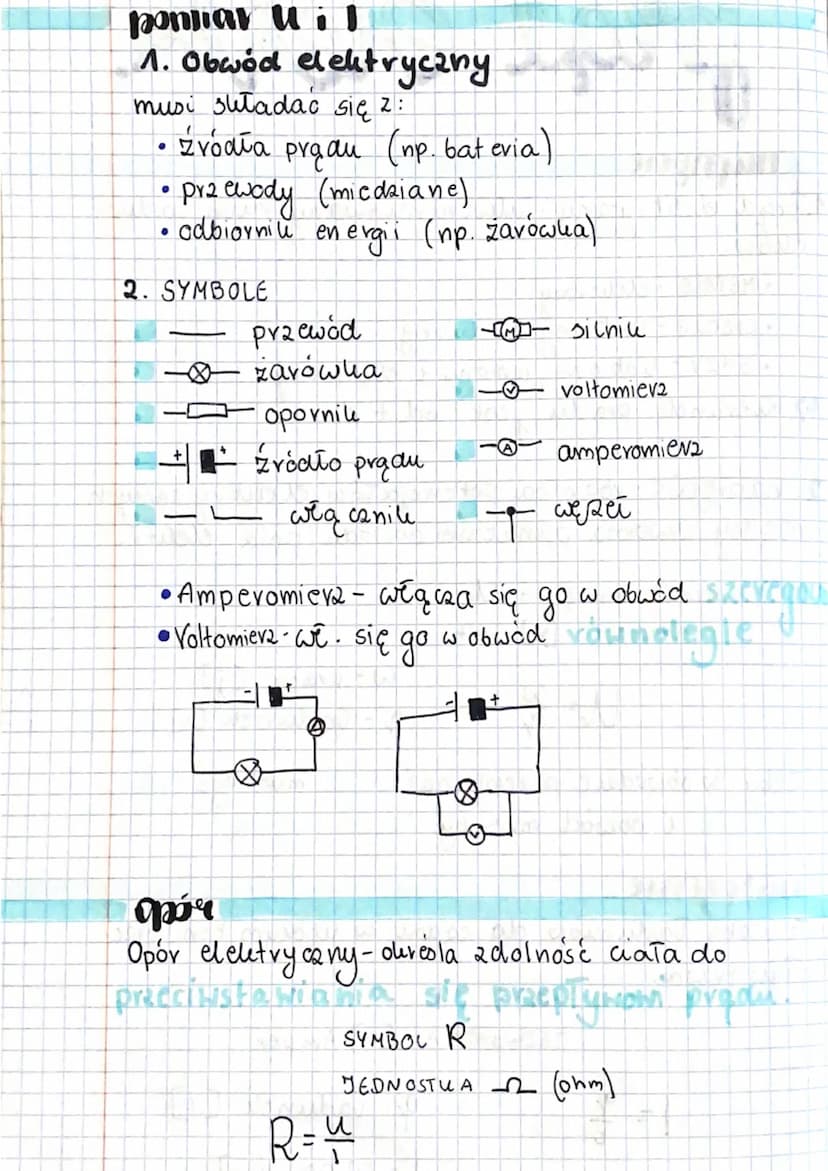 pomiar U i I
1. Obwód elektryczny
musi składać się z:
• źródła prądu (np. bateria)
• przewody (miedziane)
• odbiornik energii (np. żarówka)
2. SYMBOLE
przewód
żarówka
opornik
+ + źródło prądu
włącznik
M silnik
V voltomierz
A amperomierz
węzeł
• Amperomierz - włącza się go w obwód
• Voltomierz - wł. się go w obwód równolegle
- +
A
- +
V
opór
Opór elektryczny - określa zdolność ciała do
przeciwstawiania się przepływowi prądu.
SYMBOL R
JEDNOSTKA Ω (ohm)
R = U/I